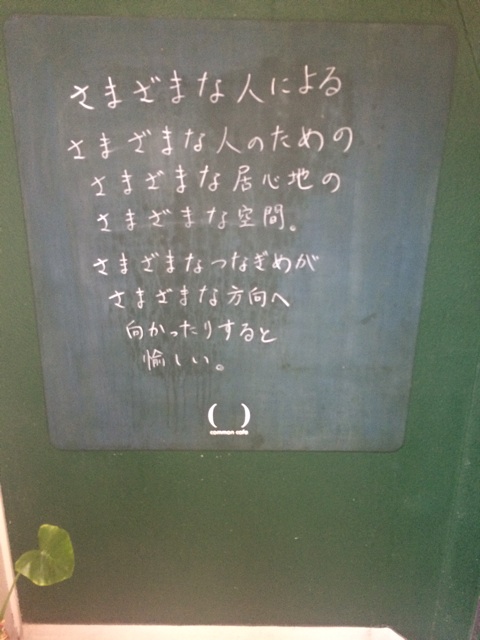 さまざまな人による
さまざまな人のための
さまざまな居心地の
さまざまな空間。
さまざまなつなぎめが
さまざまな方向へ
向かったりすると
愉しい。
( )
common cafe